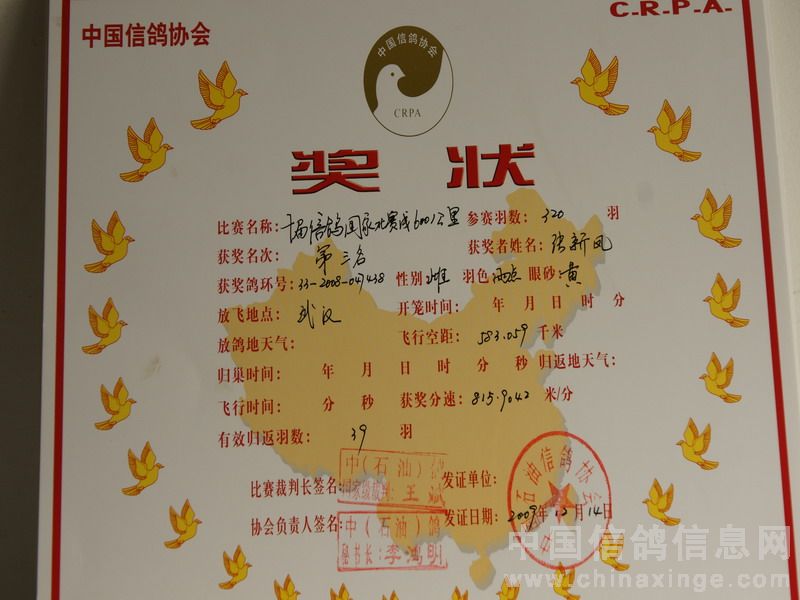 C-R-P-A-
中国信鸽协会
中国信鸽协会
CRPA
奖 状
比赛名称: 信鸽国家比赛 600公里 参赛羽数: 320 羽
获奖名次: 第三名 获奖者姓名: 张新凤
获奖鸽环号: 33-2008-047438 性别 雌 羽色 雨点 眼砂: 黄
放飞地点: 武汉 开笼时间: 年 月 日 时 分
放鸽地天气: 飞行空距: 583.059 千米
归巢时间: 年 月 日 时 分 秒 归返地天气:
飞行时间: 分 秒 获奖分速: 815.9042 米/分
有效归返羽数: 39 羽
中(石油)鸽
比赛裁判长签名: 国家级裁判: 王斌 发证单位:
石油信鸽协会
协会负责人签名: 中(石油)鸽 发证日期: 2009年12月14日
秘书长: 李鸿明
中国信鸽信息网
www.chinaxinge.com